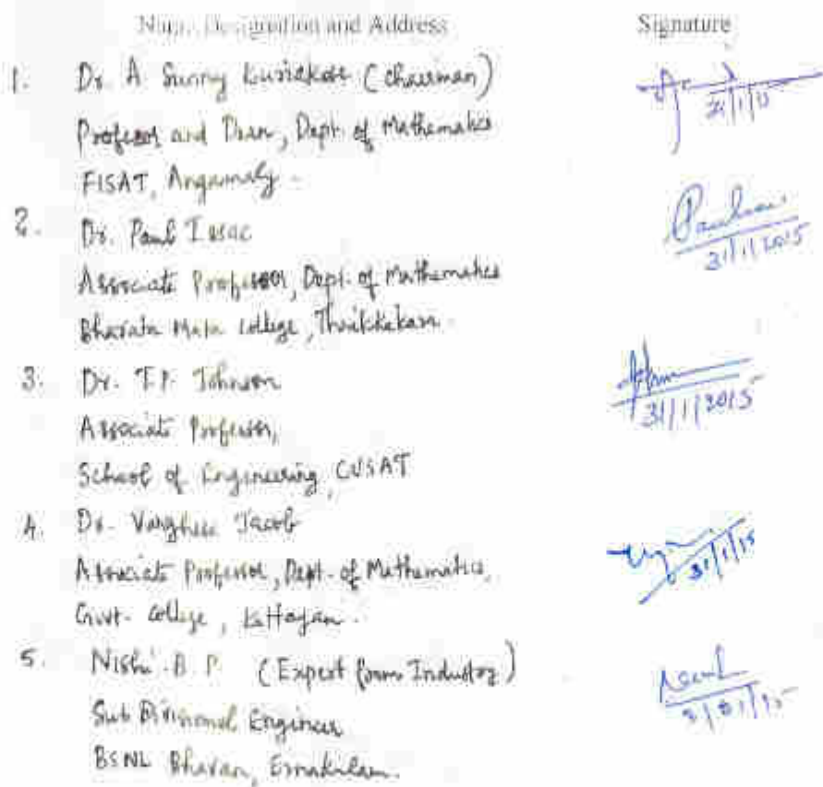 Name, Designation and Address Signature
1. Dr. A Sunny Kuriakose (Chairman)
Professor and Dean, Dept. of Mathematics
FISAT, Angamaly.
31/1/15
2. Dr. Paul Isaac
31/1/2015
Associate Professor, Dept. of Mathematics
Bharata Mata College, Thrikkakara.
3. Dr. T.P. Johnson
31/1/2015
Associate Professor,
School of Engineering, CUSAT
4. Dr. Varghese Jacob
31/1/15
Associate Professor, Dept. of Mathematics,
Govt. College,
5. Nishi. B. P. (Expert from Industry)
Sub Divisional Engineer
BSNL Bhavan, Ernakulam.